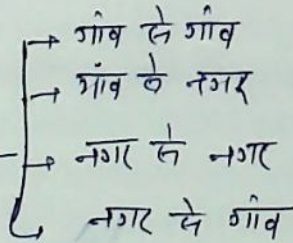 → गाँव से गाँव
→ गांव से नगर
→ नगर से नगर
नगर से गाँव